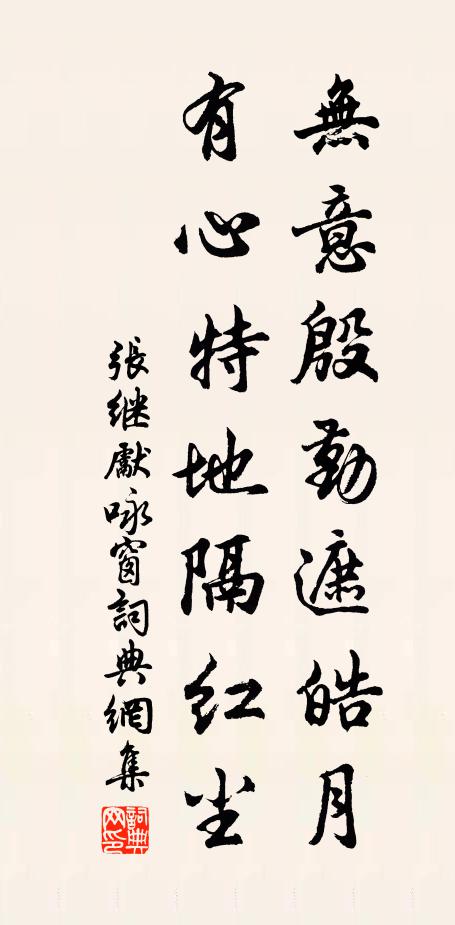 無意殷勤遮皓月
有心特地隔红尘
張继獻咏窗詞典網集
詞典网印